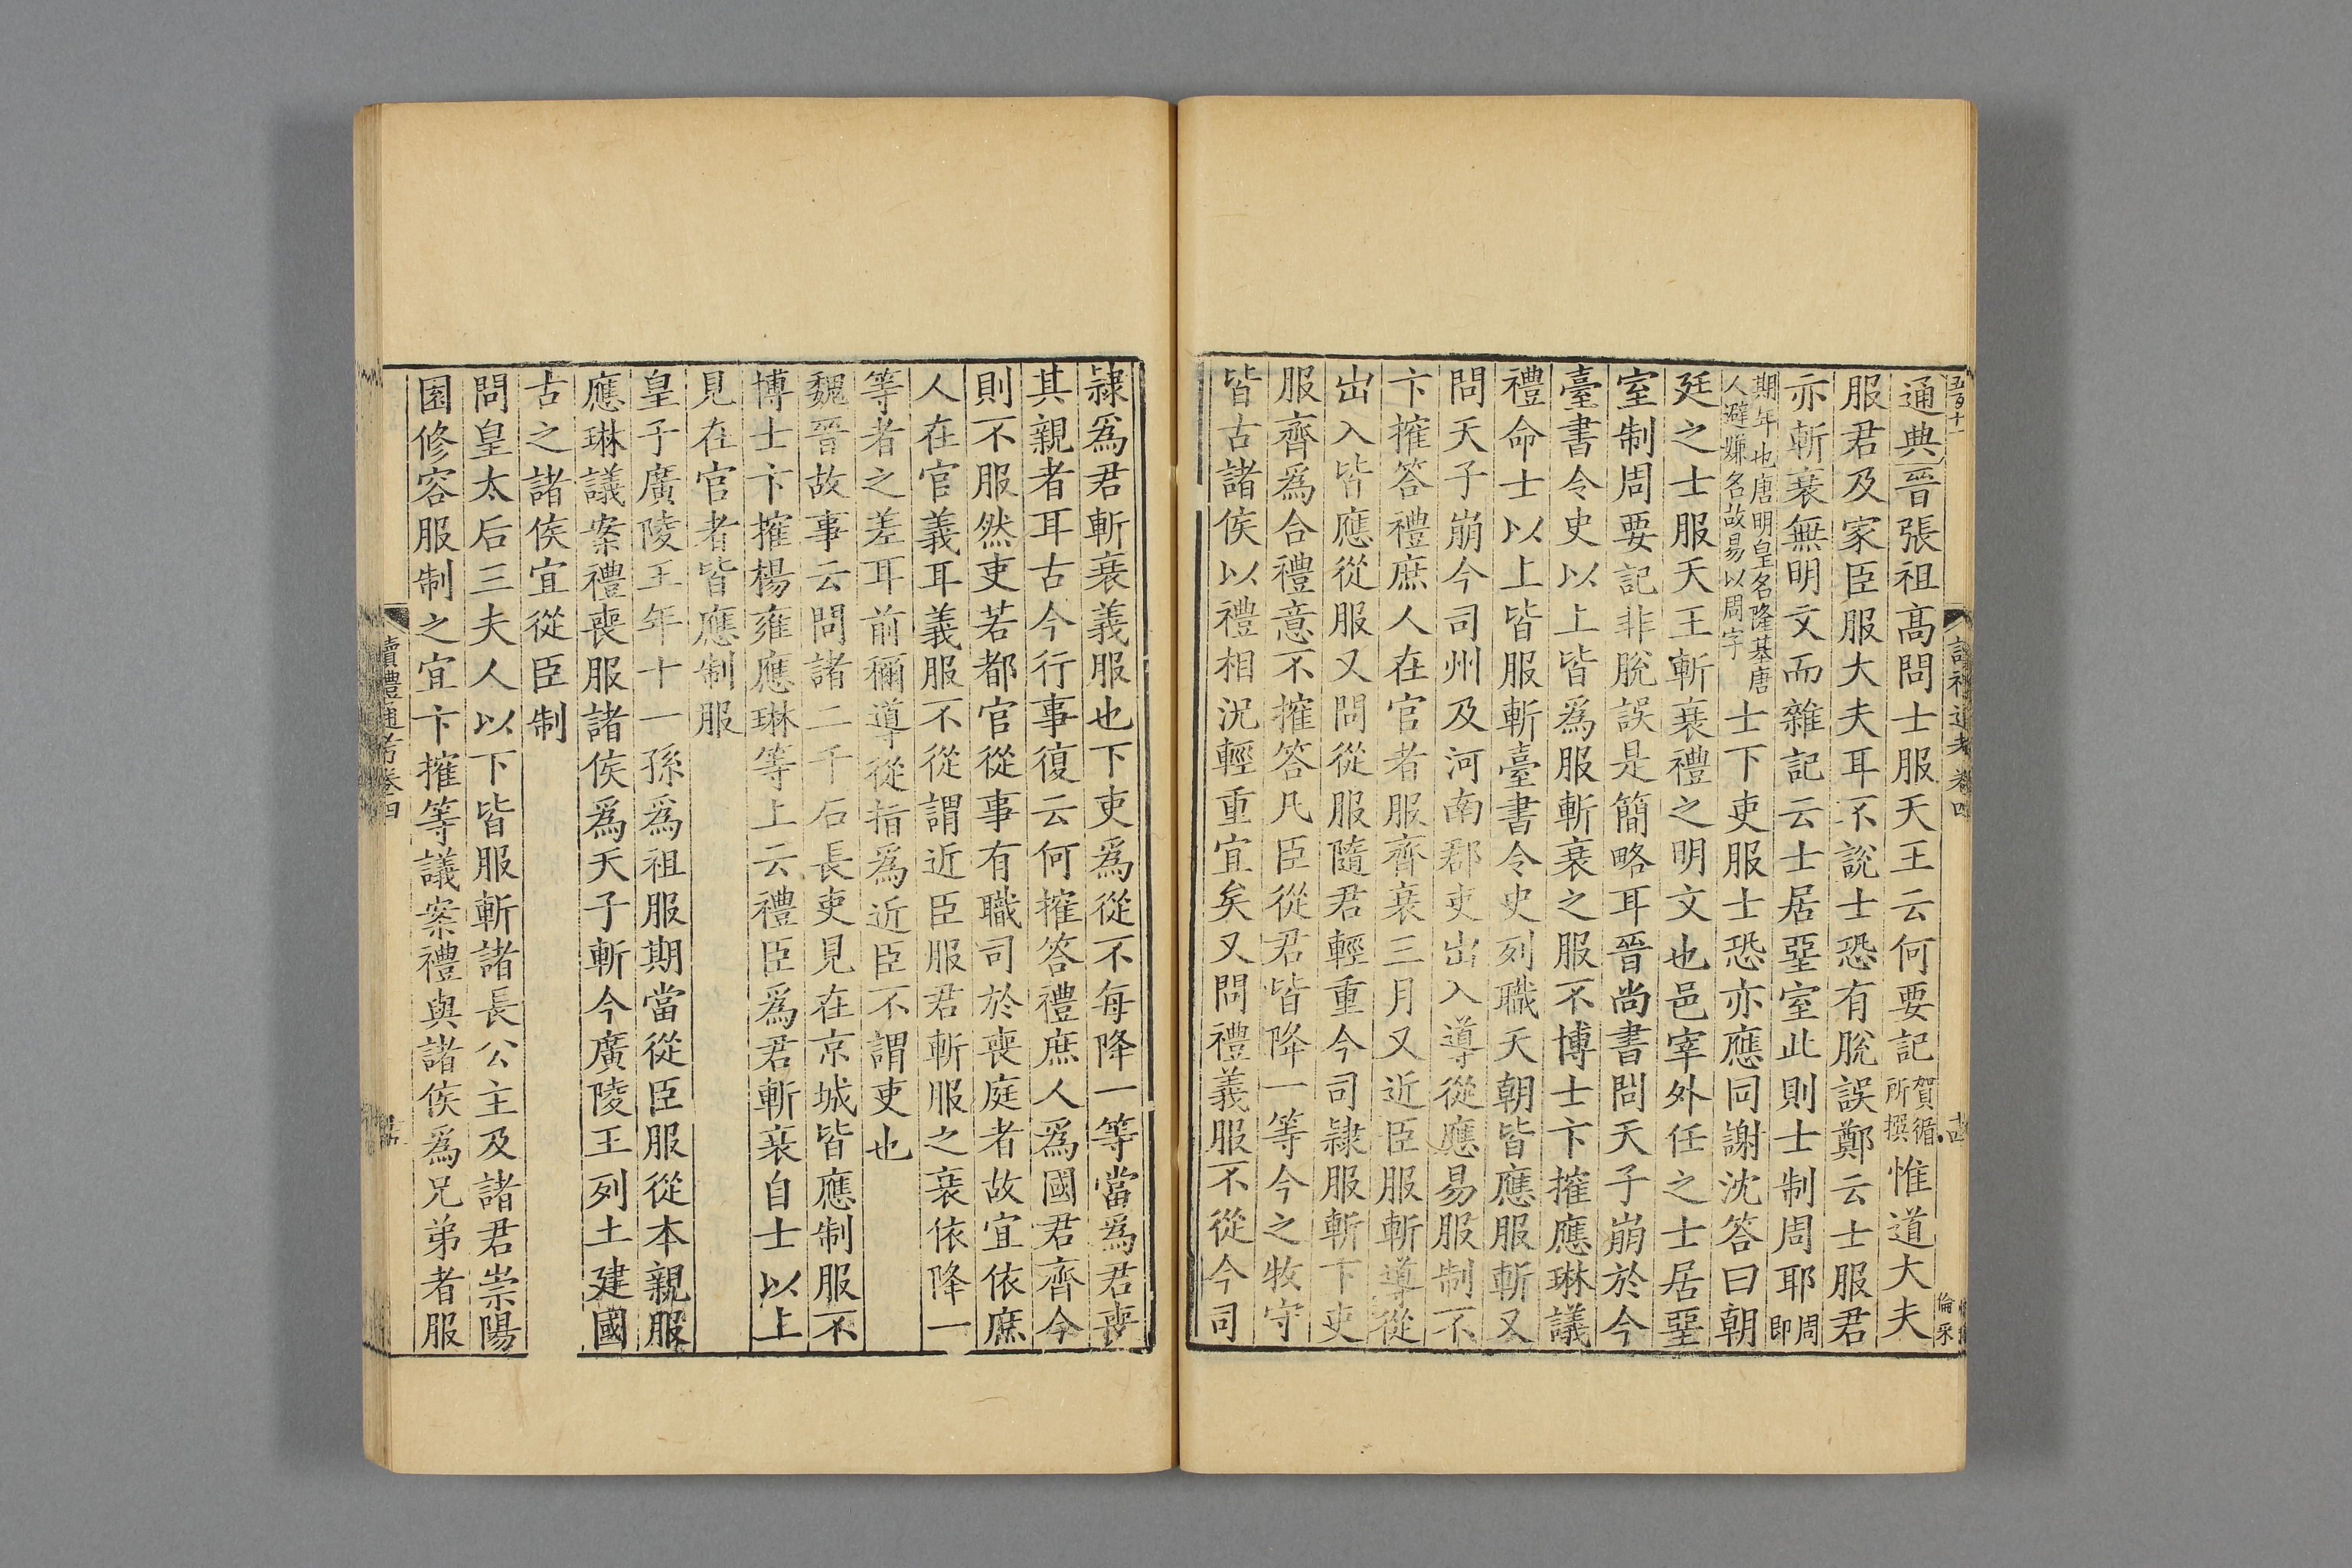 通典晉張祖高問士服天王云何要記賀循所撰惟道大夫
服君及家臣服大夫耳不說士恐有脫誤鄭云士服君
亦斬衰無明文而雜記云士居堊室此則士制周耶周即
期年也唐明皇名隆基唐人避嫌名故易以周字士下吏服士恐亦應同謝沈答曰朝
廷之士服天王斬衰禮之明文也邑宰外任之士居堊
室制周要記非脫誤是簡略耳晉尚書問天子崩於今
臺書令史以上皆爲服斬衰之服不博士卞搉應琳議
禮命士以上皆服斬臺書令史列職天朝皆應服斬又
問天子崩今司州及河南郡吏出入導從應易服制不
卞搉答禮庶人在官者服齊衰三月又近臣服斬導從
出入皆應從服又問從服隨君輕重今司隷服斬下吏
服齊爲合禮意不搉答凡臣從君皆降一等今之牧守
皆古諸侯以禮相況輕重宜矣又問禮義服不從今司
隷爲君斬衰義服也下吏爲從不每降一等當爲君喪
其親者耳古今行事復云何搉答禮庶人爲國君齊今
則不服然吏若都官從事有職司於喪庭者故宜依庶
人在官義耳義服不從謂近臣服君斬服之衰依降一
等者之差耳前禰導從指爲近臣不謂吏也
魏晉故事云問諸二千石長吏見在京城皆應制服不
博士卞搉楊雍應琳等上云禮臣爲君斬衰自士以上
見在官者皆應制服
皇子廣陵王年十一孫爲祖服期當從臣服從本親服
應琳議案禮喪服諸侯爲天子斬今廣陵王列土建國
古之諸侯宜從臣制
問皇太后三夫人以下皆服斬諸長公主及諸君崇陽
園修容服制之宜卞搉等議案禮與諸侯爲兄弟者服
讀禮通考卷四